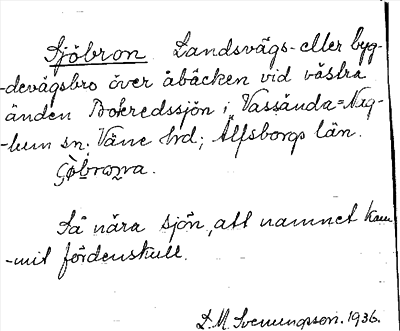 Sjöbron Landsvägs- eller byg-
-devägsbro över åbäcken vid västra
änden Bokredssjön i Vassända=Nag-
-lum sn. Väne hrd; Älfsborgs län.
Så nära sjön, att namnet kom-
-mit fördenskull.
L.M. Svenungsson. 1936.